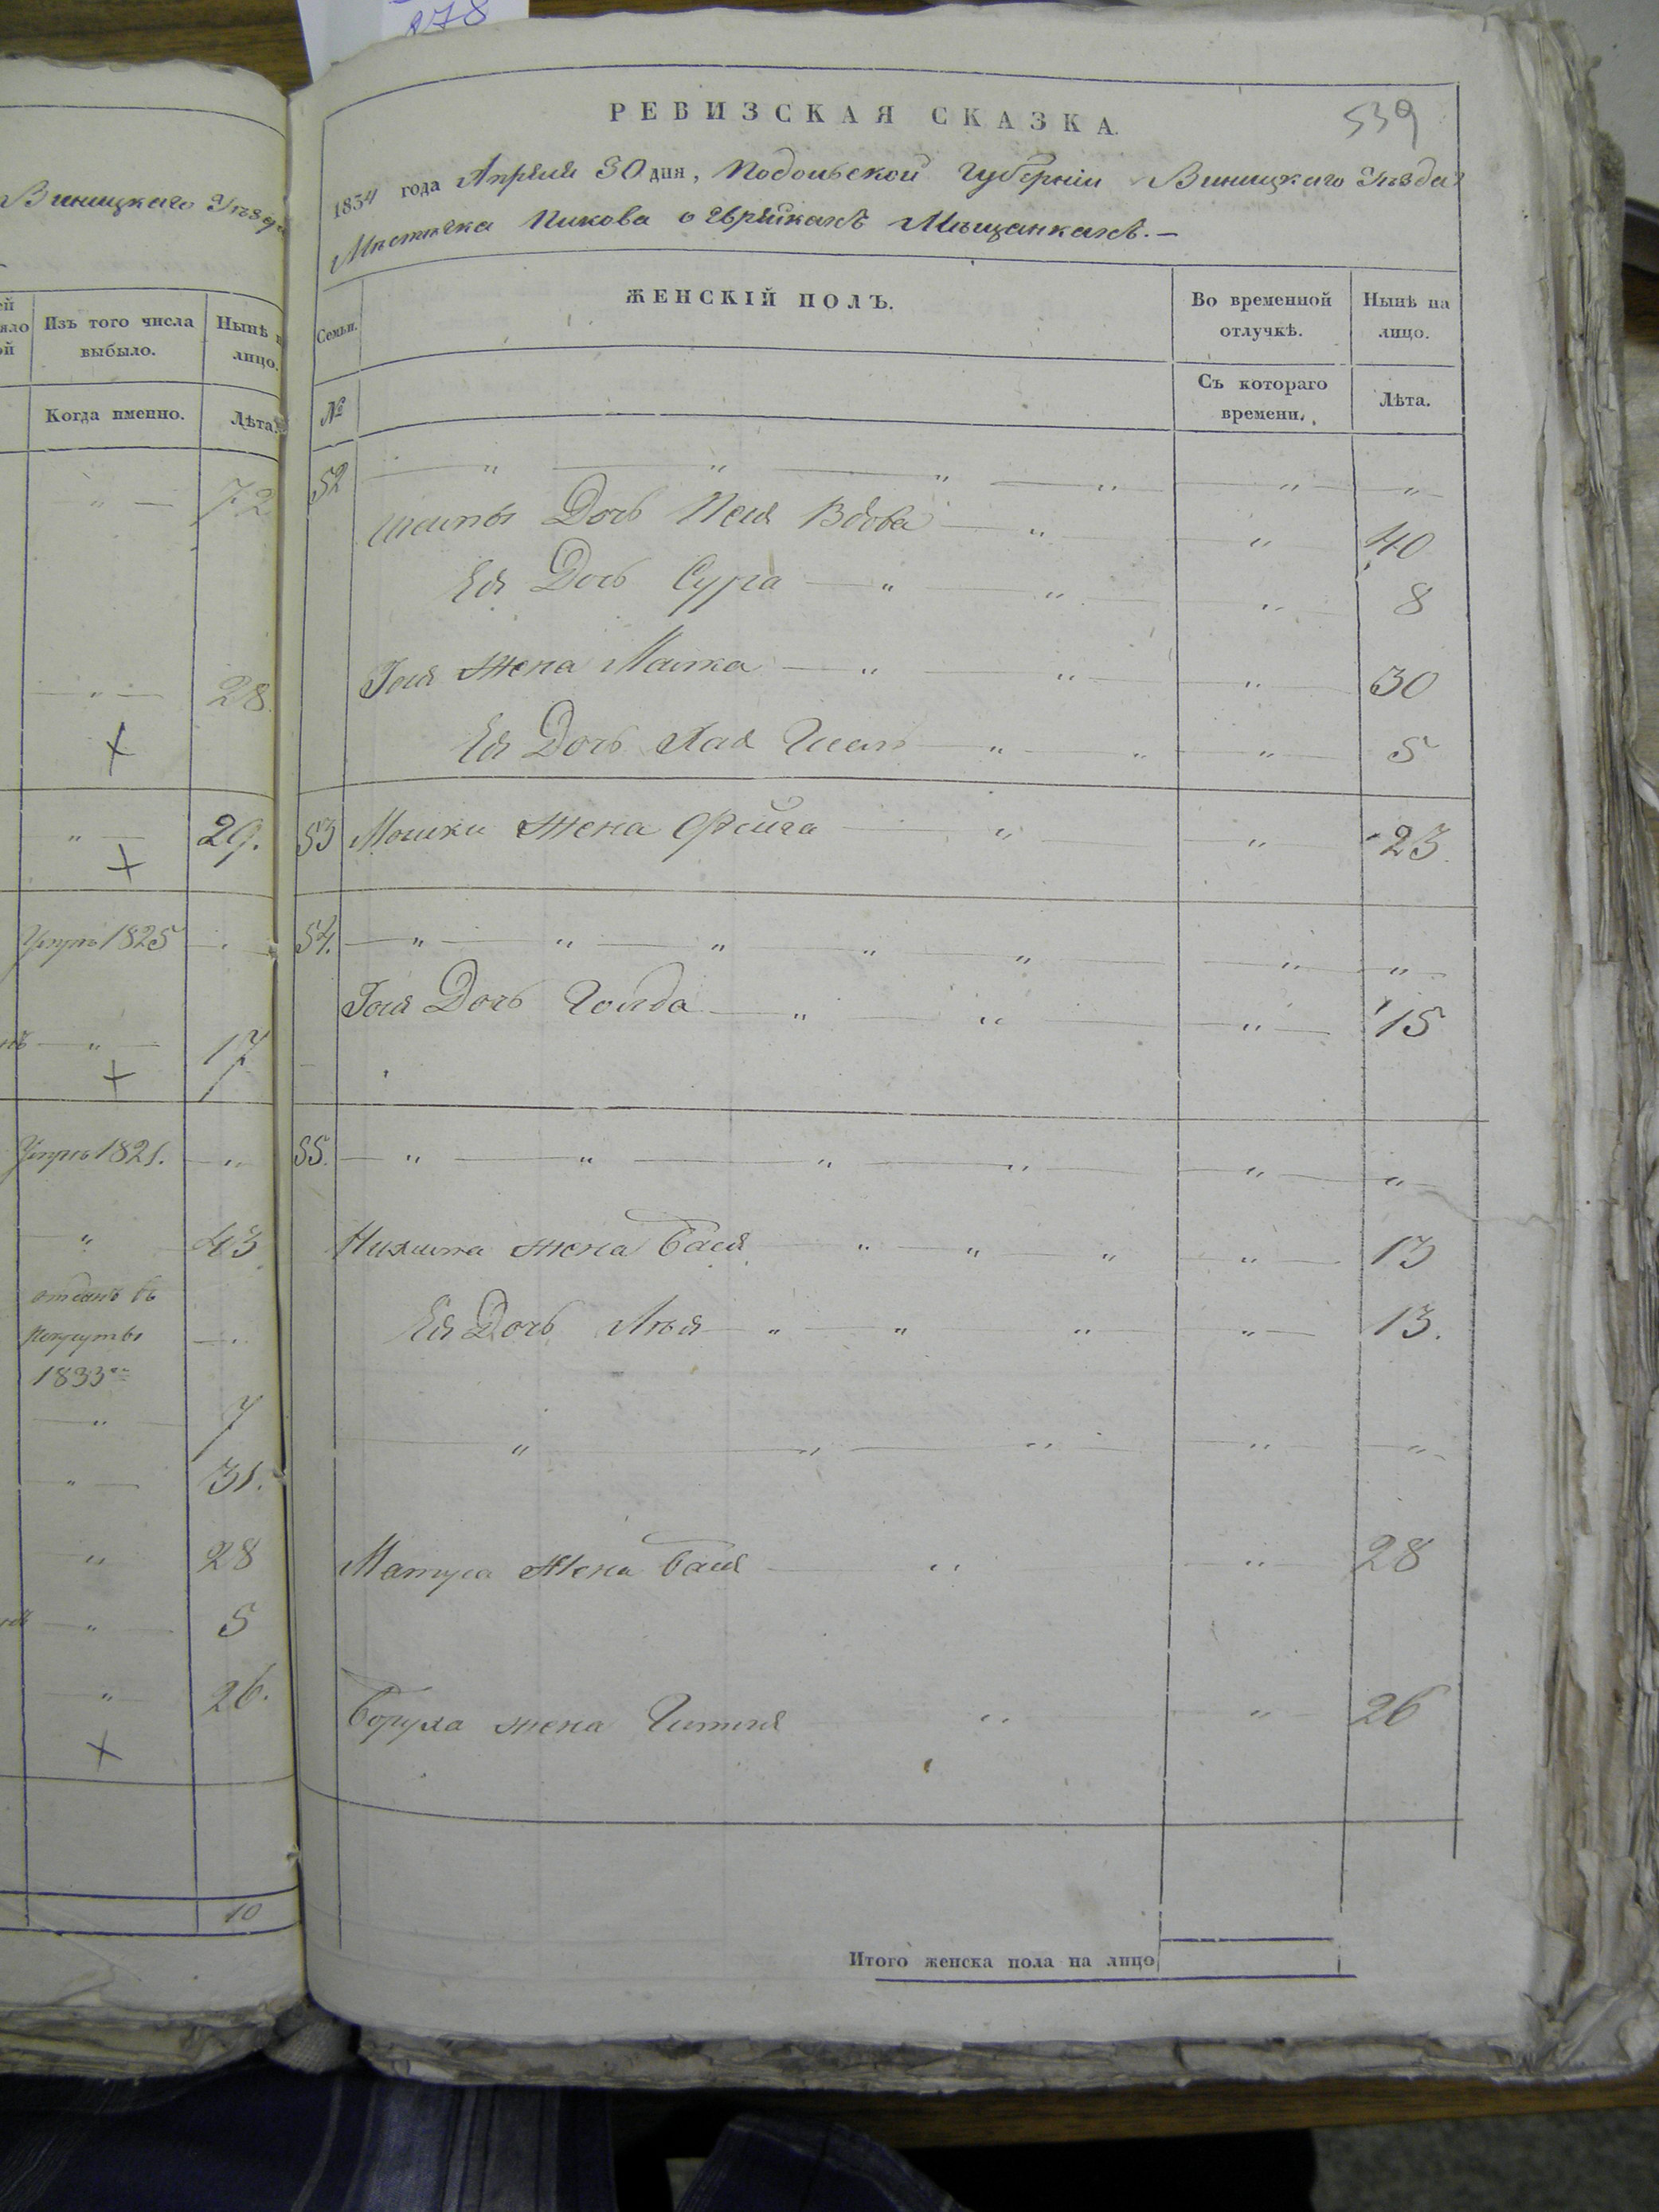 278
Виницкаго Уѣзда
Изъ того числа
выбыло.
Нынѣ
лицо.
Когда именно.
Лѣта.
72
28
29.
1825
17
1821.
43
отданъ въ
рекруты
1833
7
31.
28
5
26.
10
РЕВИЗСКАЯ СКАЗКА.
539
1834 года Апреля 30 дня, Подольской Губерніи Виницкаго Уѣзда
Мистичка Пикова о Еврейкахъ Мѣщанкахъ.
Семьи.
ЖЕНСКІЙ ПОЛЪ.
Во временной
отлучкѣ.
Нынѣ на
лицо.
№
Съ котораго
времени.
Лѣта.
52
Дочь Песя Вдова 40
Ея Дочь Сура 8
жена Малка 30
Ея Дочь Хая 5
53 Мошки жена Фейга 23
54.
Дочь Голда 15
55.
жена Бася 13
Ея Дочь Лея 13.
Матуса жена Бася 28
Боруха жена Гитля 26
Итого женска пола на лицо